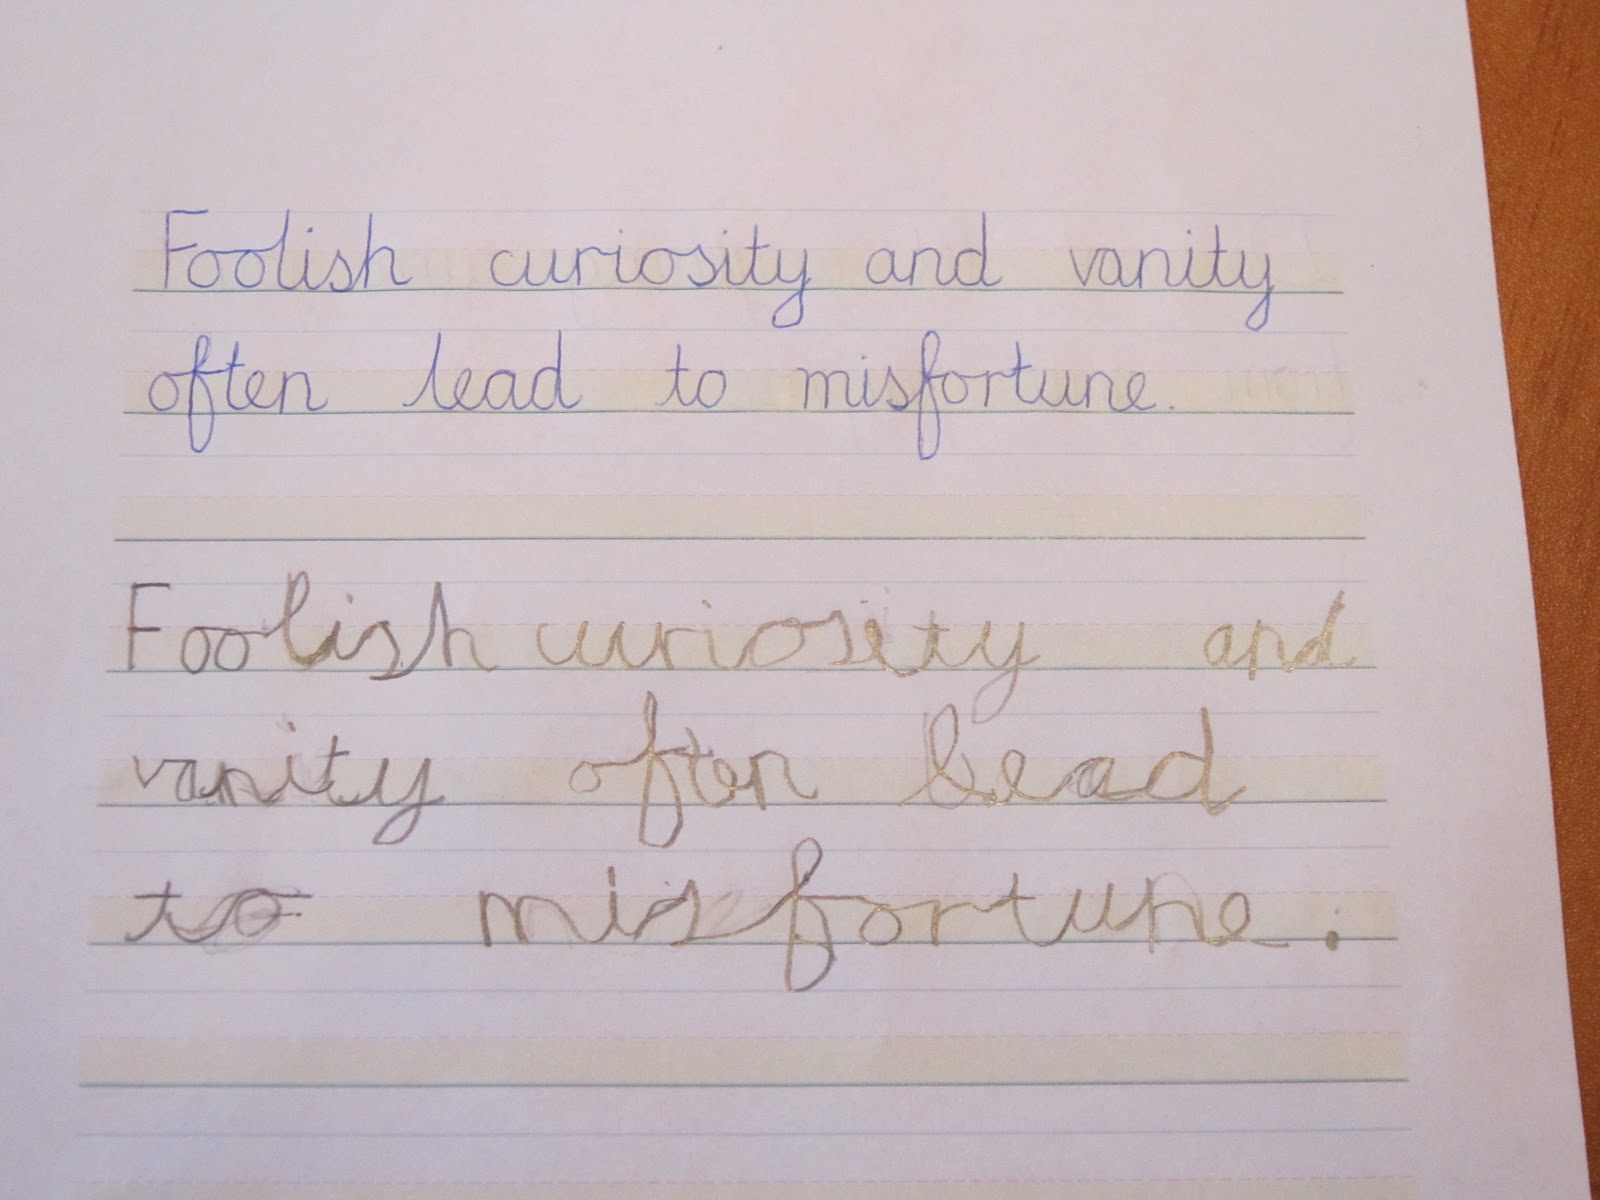 Foolish curiosity and vanity
often lead to misfortune.
Foolish curiosity and
vanity often lead
to misfortune.